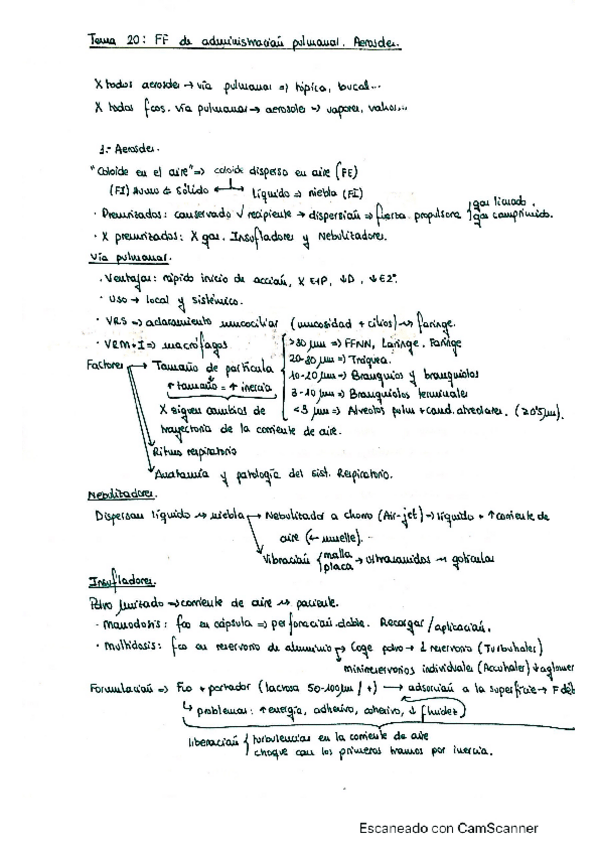 Tema 20: FF de administración pulmonar. Aerosoles.
X todos aerosoles → vía pulmonar => tópica, bucal...
X todos fcos. vía pulmonar → aerosoles => vapores, vahos...
1.- Aerosoles.
"Coloide en el aire" => coloide disperso en aire (FE)
(FI) Humo ← sólido ← → líquido => niebla (FI)
· Presurizados: conservado √ recipiente → dispersión => fuerza propulsora { gas licuado. gas comprimido.
· X presurizados: X gas. Insufladores y Nebulizadores.
Vía pulmonar.
· Ventajas: rápido inicio de acción, X EHP, ↓D, ↓E2º.
· Uso → local y sistémico.
· VRS => aclaramiento mucociliar (mucosidad + cilios) → faringe.
· VRM+I => macrófagos
Factores → Tamaño de partícula
↑ tamaño = ↑ inercia
X siguen cambios de
trayectoria de la corriente de aire.
>30 μm => FFNN, Laringe, Faringe
20-30 μm => Tráquea.
10-20 μm => Bronquios y bronquiolos
3-10 μm => Bronquiolos terminales
<3 μm => Alveolos pulm + cond. alveolares. (≥0'5 μm).
Ritmo respiratorio
Anatomía y patología del sist. Respiratorio.
Nebulizadores.
Dispersan líquido → niebla → Nebulizador a chorro (Air-jet) → líquido + ↑ corriente de
aire (← muelle).
Vibración { malla placa → ultrasonidos → gotículas
Insufladores.
Polvo limitado => corriente de aire → paciente.
· Monodosis: fco en cápsula => perforación doble. Recargar/aplicación.
· Multidosis: fco en reservorio de aluminio → Coge polvo → 1 reservorio (Turbuhaler)
minireservorios individuales (Accuhaler) ↓ aglomer
Formulación => Fco + portador (lactosa 50-100 μm / +) → adsorción a la superficie → F déb
problemas: ↑ energía, adhesivo, cohesivo, ↓ fluidez)
liberación { turbulencias en la corriente de aire
choque con los primeros tramos por inercia.
Escaneado con CamScanner